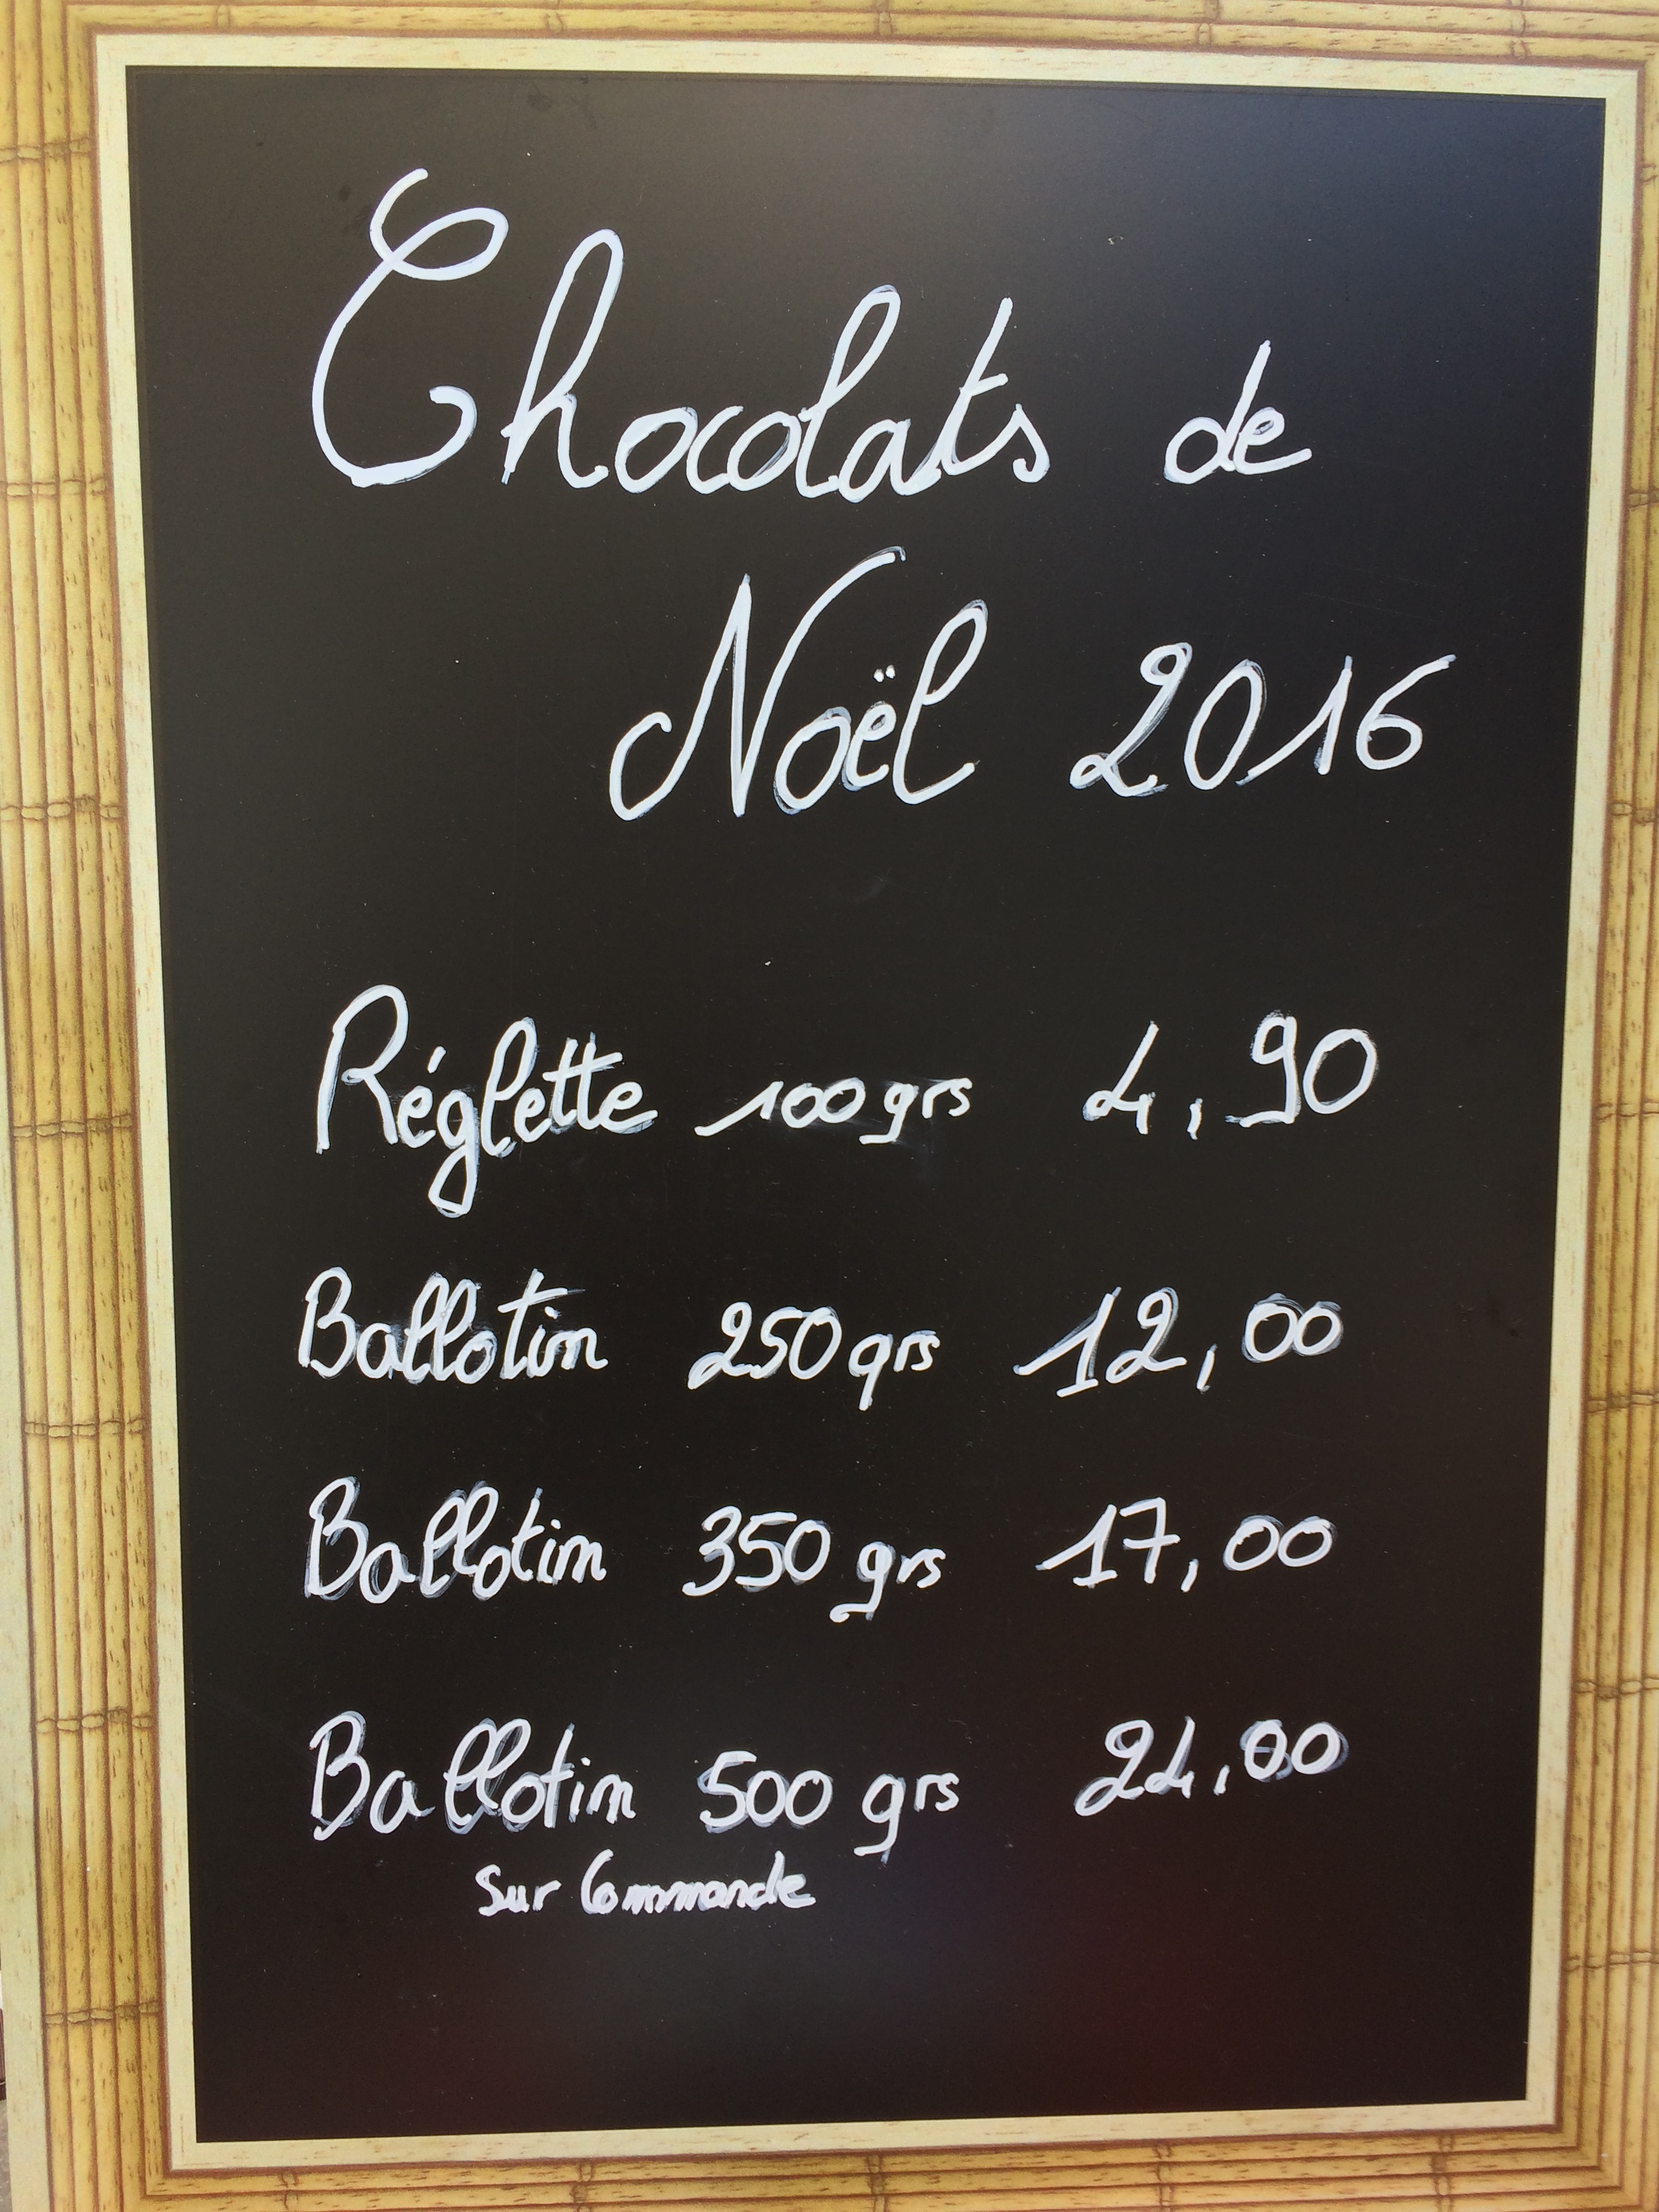 Chocolats de
Noël 2016
Réglette 100grs 4,90
Ballotin 250grs 12,00
Ballotin 350 grs 17,00
Ballotin 500 grs 24,00
Sur Commande